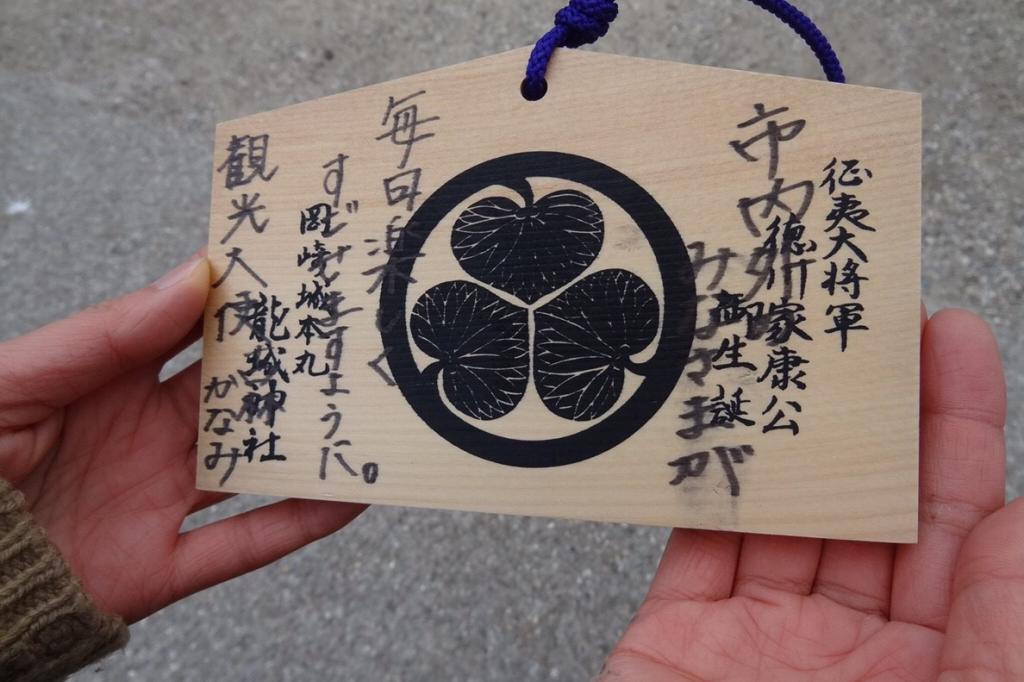 征夷大将軍
徳川家康公
御生誕
市内外
みなさまが
毎日楽しく
すごせますように。
岡崎城本丸
龍城神社
観光大使
かなみ